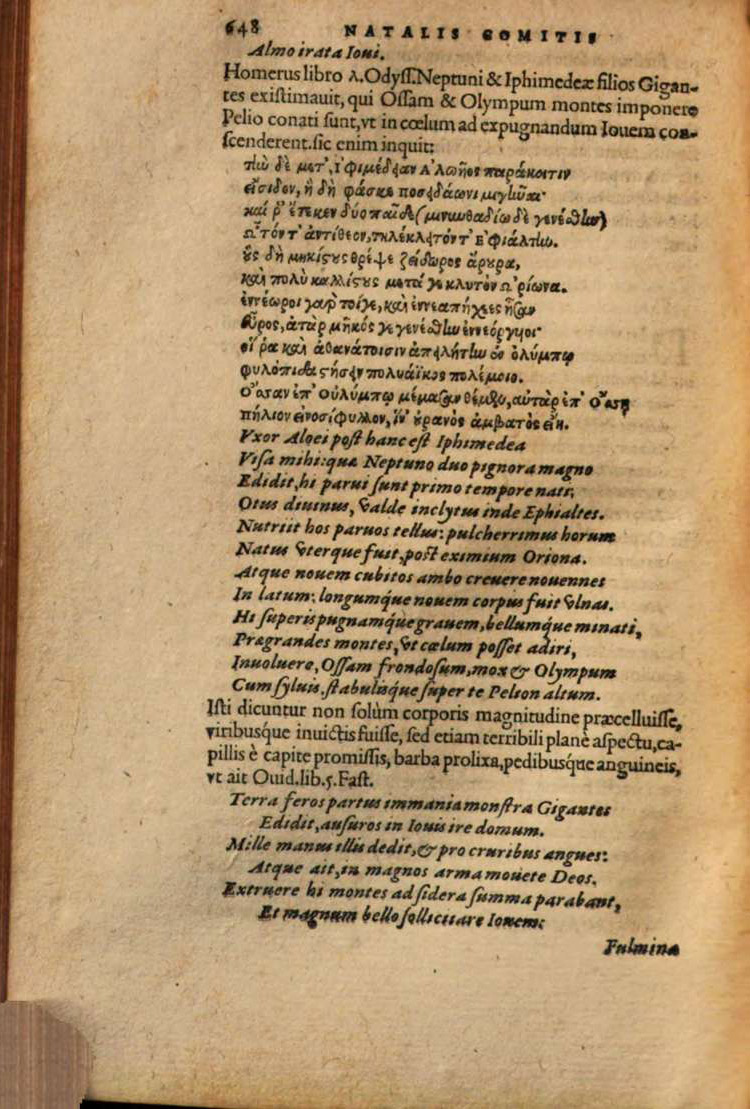 648 NATALIS COMITIS
Almo irata Ioui.
Homerus libro λ. Odyſſ. Neptuni & Iphimedeæ filios Gigan-
tes exiſtimauit, qui Oſſam & Olympum montes imponere
Pelio conati ſunt, vt in cœlum ad expugnandum Iouem con-
ſcenderent. ſic enim inquit:
τὴν δὲ μετ', ἰφιμέδειαν Ἀλωῆος παράκοιτιν
εἴσιδον, ἣ δὴ φάσκε ποσειδάωνι μιγῆναι·
καί ῥ' ἔτεκεν δύο παῖδε (μινυνθαδίω δὲ γενέσθην)
Ὦτόν τ' ἀντίθεον, τηλέκλητόν τ' Ἐφιάλτην.
οὓς δὴ μηκίστους θρέψε ζείδωρος ἄρουρα,
καὶ πολὺ καλλίστους μετά γε κλυτὸν Ὠρίωνα.
ἐννέωροι γὰρ τοίγε, καὶ ἐννεαπήχεες ἦσαν
εὖρος, ἀτὰρ μῆκός γε γενέσθην ἐννεόργυιοι·
οἵ ῥα καὶ ἀθανάτοισιν ἀπειλήτην ἐν ὀλύμπῳ
φυλόπιδα στήσειν πολυάϊκος πολέμοιο.
Ὄσσαν ἐπ' Οὐλύμπῳ μέμασαν θέμεν, αὐτὰρ ἐπ' Ὄσσῃ
πήλιον εἰνοσίφυλλον, ἵν' οὐρανὸς ἀμβατὸς εἴη.
Vxor Aloei poſt hanc eſt Iphimedea
Viſa mihi: quæ Neptuno duo pignora magno
Edidit, hi parui ſunt primo tempore nati,
Otus diuinus, valde inclytus inde Ephialtes.
Nutriit hos paruos tellus: pulcherrimus horum
Natus vterque fuit, poſt eximium Oriona.
Atque nouem cubitos ambo creuere nouennes
In latum: longumque nouem corpus fuit vlnas.
Hi ſuperis pugnamque grauem, bellumque minati,
Prægrandes montes, vt cœlum poſſet adiri,
Inuoluere, Oſſam frondoſum, mox & Olympum
Cum ſyluis, ſtabuliſque ſuper te Pelion altum.
Iſti dicuntur non ſolùm corporis magnitudine præcelluiſſe,
viribuſque inuictis fuiſſe, ſed etiam terribili planè aſpectu, ca-
pillis è capite promiſſis, barba prolixa, pedibuſque anguineis,
vt ait Ouid. lib. 5. Faſt.
Terra feros partus immania monſtra Gigantes
Edidit, auſuros in Iouis ire domum.
Mille manus illis dedit, & pro cruribus angues:
Atque ait, in magnos arma mouete Deos.
Extruere hi montes ad ſidera ſumma parabant,
Et magnum bello ſollicitare Iouem:
Fulmina